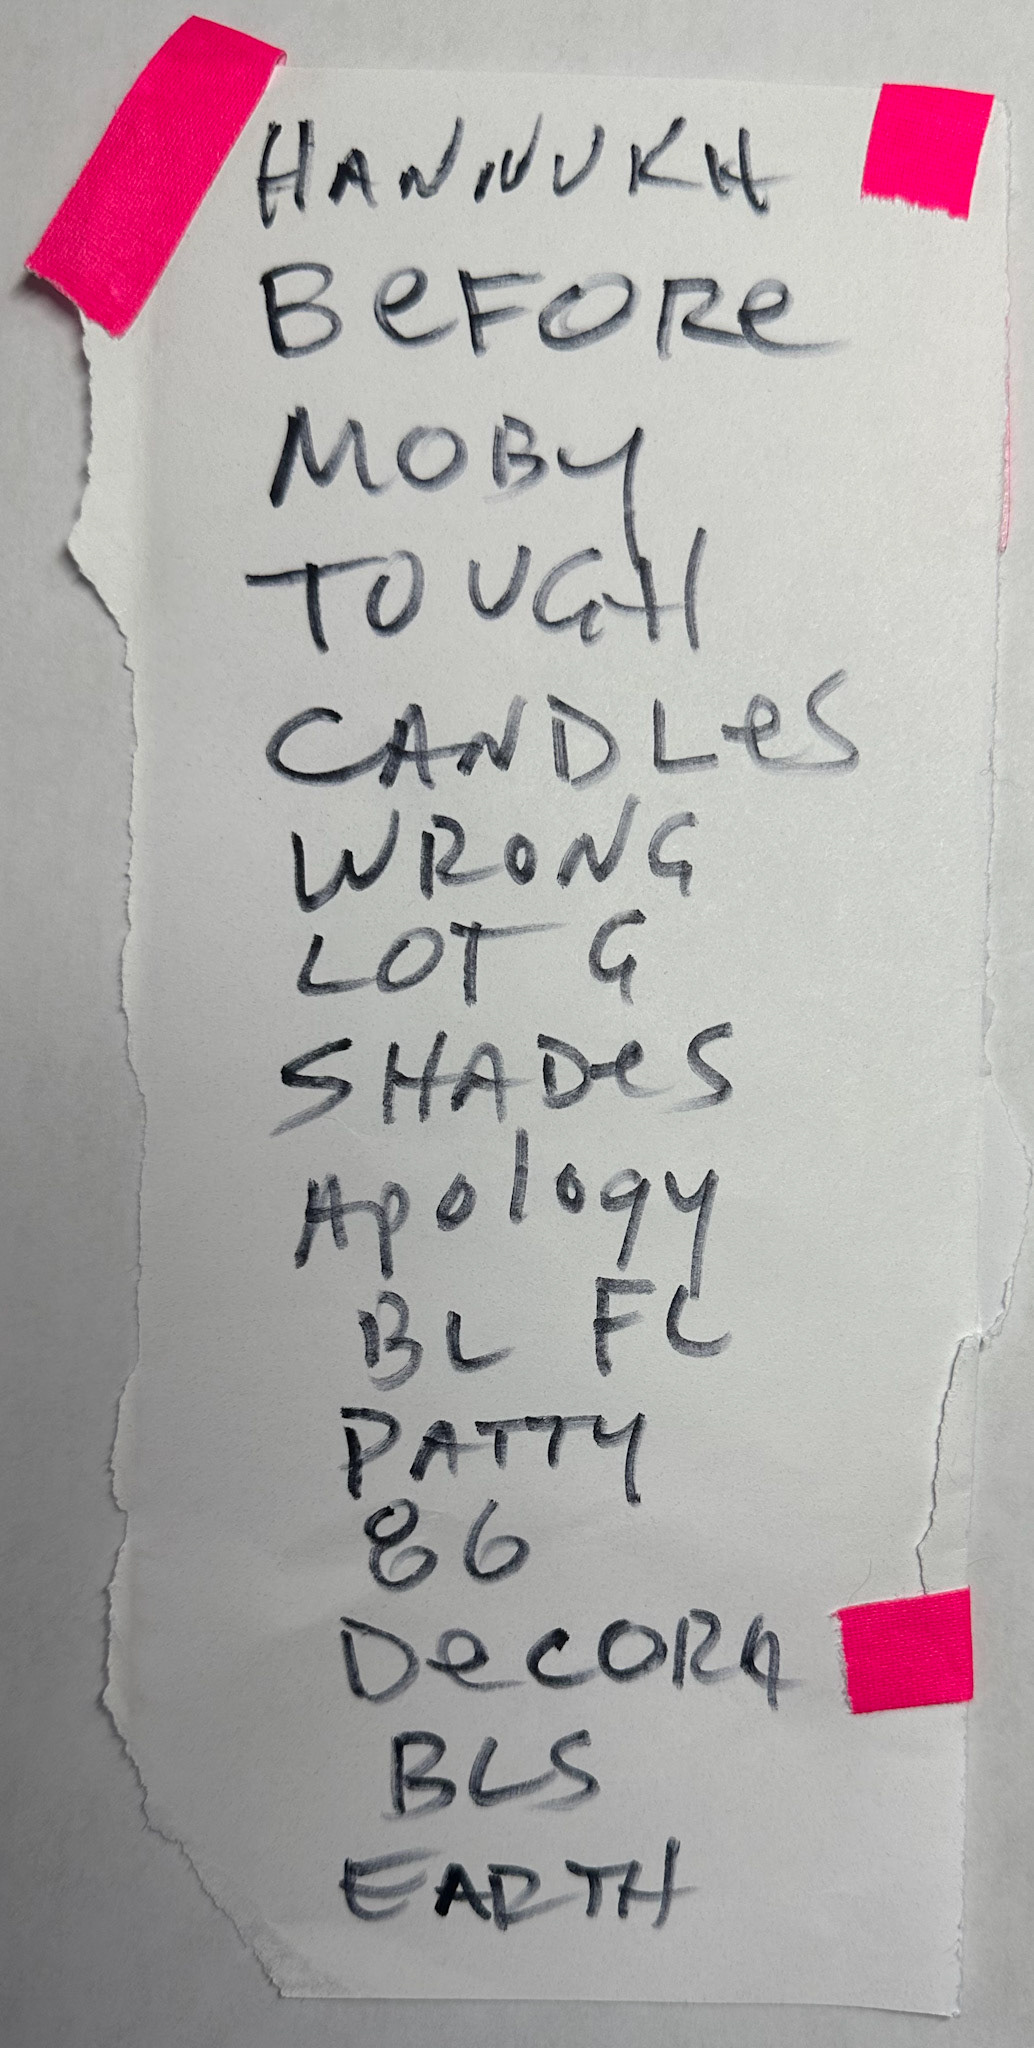 HANNUKH
BeFORe
MOBY
TOUGH
CANDLeS
WRONG
LOT G
SHADeS
Apology
BL FL
PATTY
86
DeCORA
BLS
EARTH